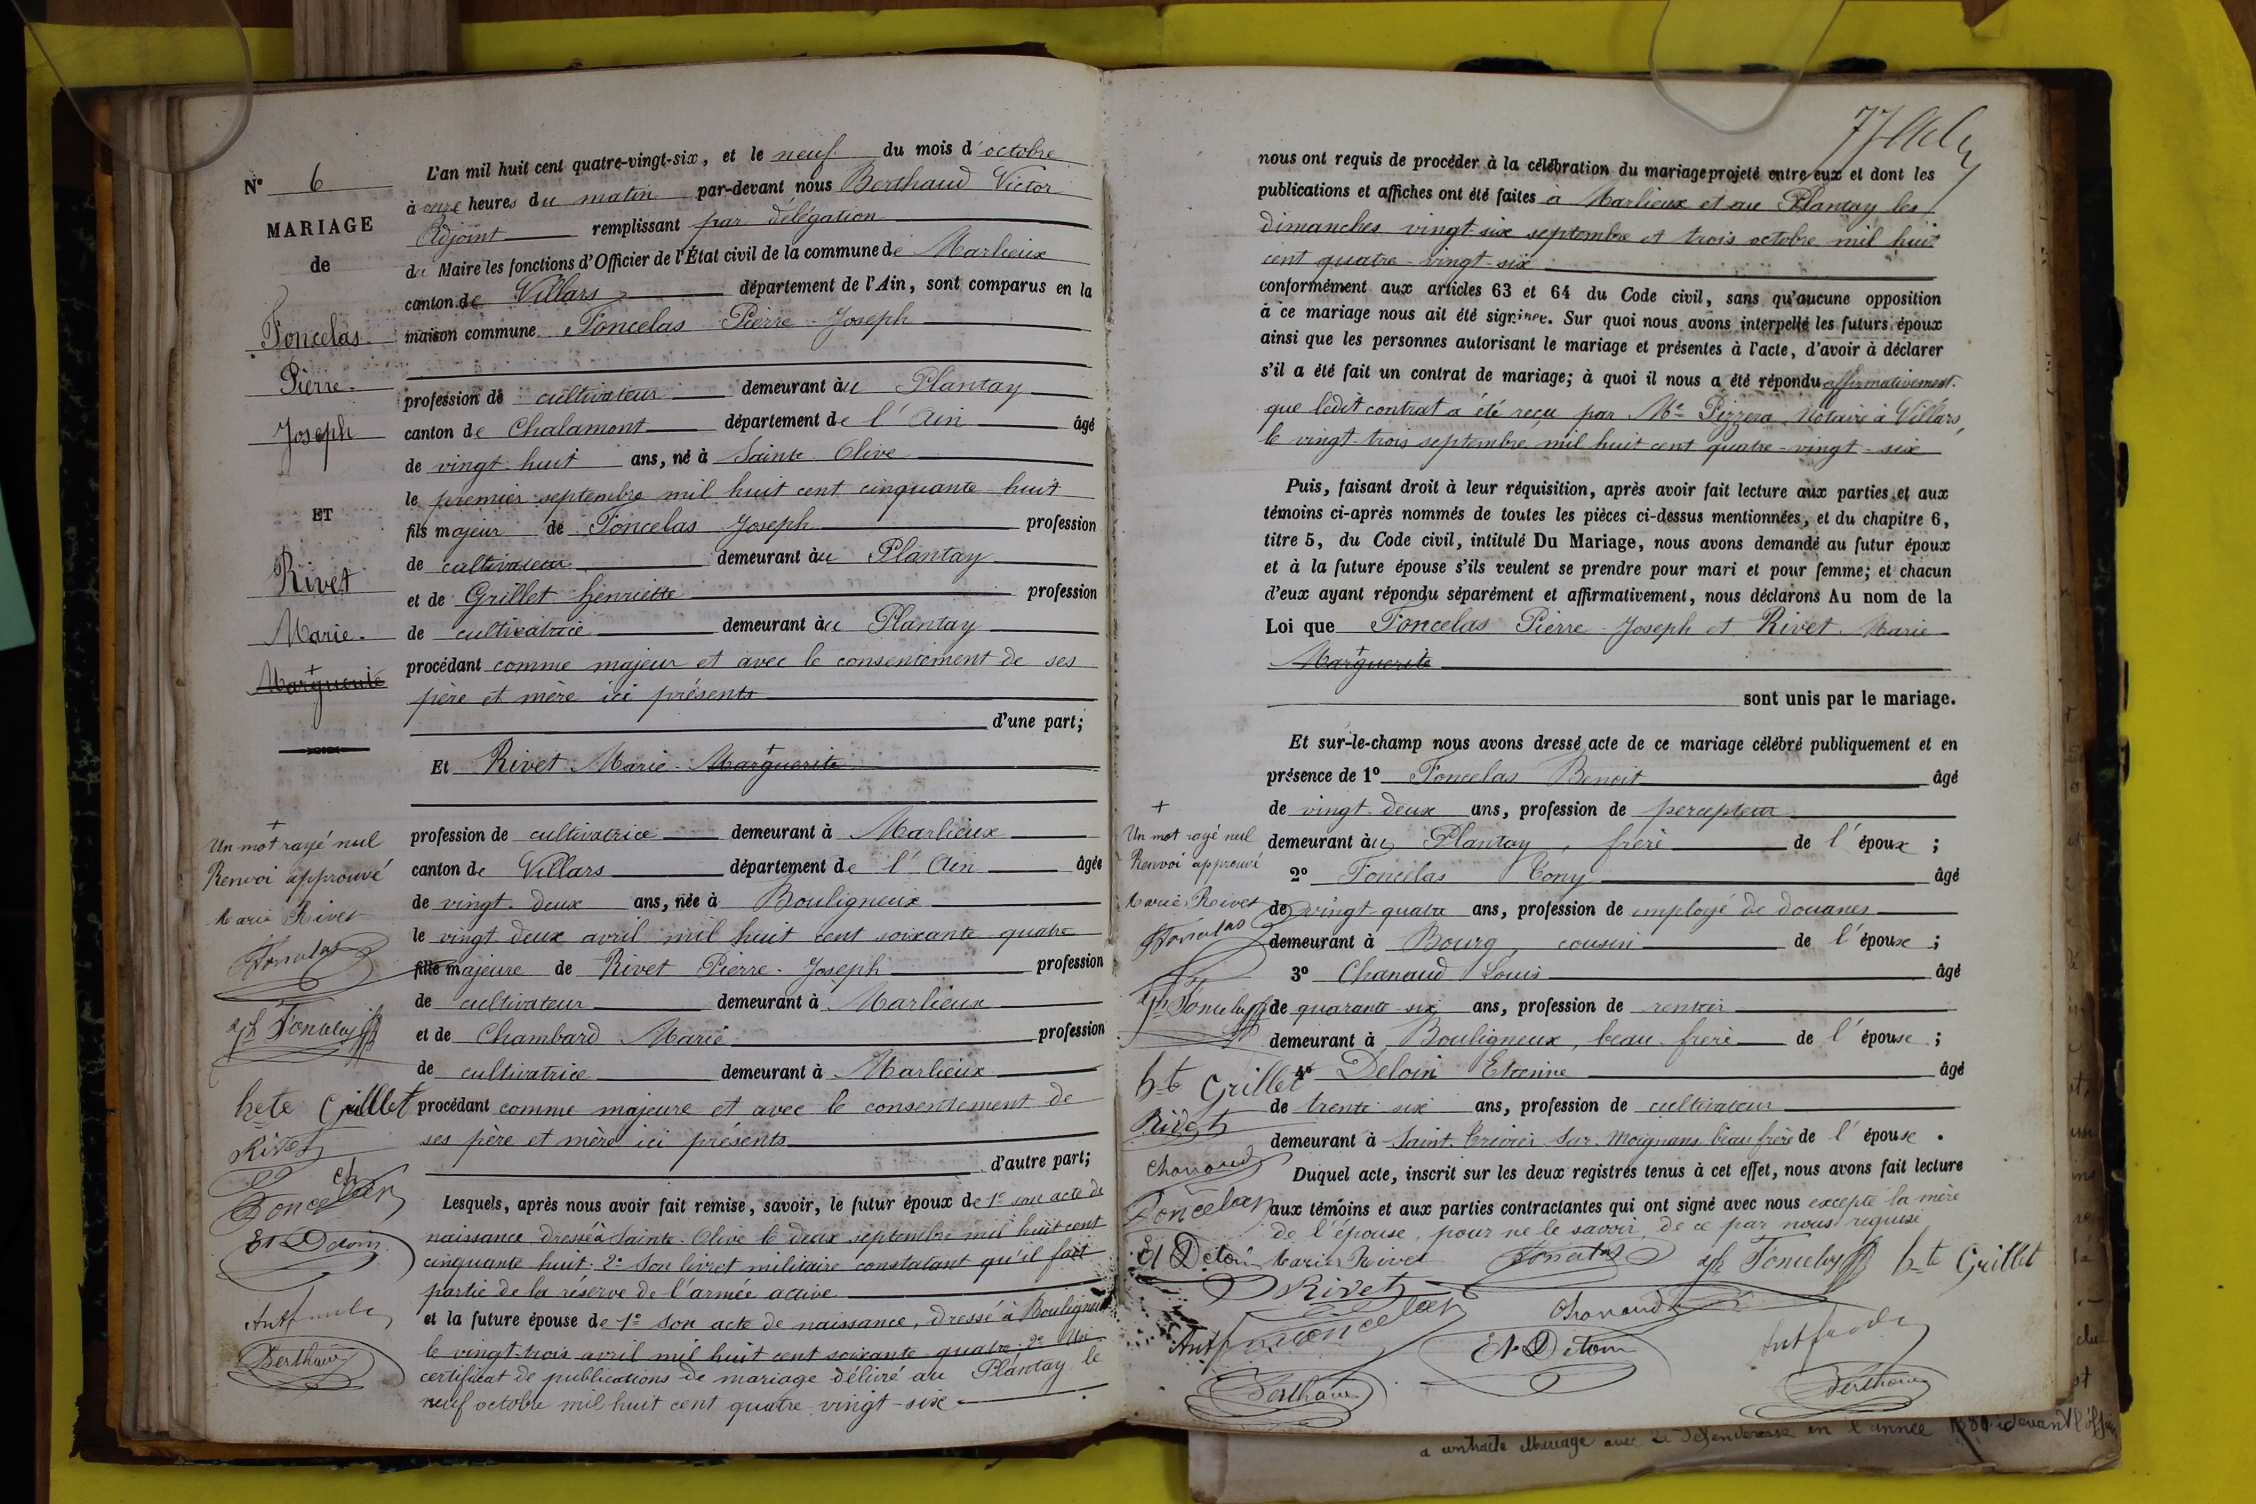 N° 6
MARIAGE
de
Foncelas
Pierre
Joseph
ET
Rivet
Marie
Marguerite
+
Un mot rayé nul
Renvoi approuvé
Marie Rivet
Foncelas
jh Foncelas
hte Grillet
Rivet
Ch
Foncelas
Et Deloin
Berthaud
L'an mil huit cent quatre-vingt-six, et le neuf du mois d'octobre
à onze heures du matin par-devant nous Berthaud Victor
Adjoint remplissant par délégation
du Maire les fonctions d'Officier de l'État civil de la commune de Marlieux
canton de Villars département de l'Ain, sont comparus en la
maison commune Foncelas Pierre-Joseph
profession de cultivateur demeurant au Plantay
canton de Chalamont département de l'Ain âgé
de vingt-huit ans, né à Sainte Olive
le premier septembre mil huit cent cinquante huit
fils majeur de Foncelas Joseph profession
de cultivateur demeurant au Plantay
et de Grillet henriette profession
de cultivatrice demeurant au Plantay
procédant comme majeur et avec le consentement de ses
père et mère ici présents
d'une part;
Et Rivet Marie-Marguerite
profession de cultivatrice demeurant à Marlieux
canton de Villars département de l'Ain âgée
de vingt-deux ans, née à Bouligneux
le vingt deux avril mil huit cent soixante quatre
fille majeure de Rivet Pierre-Joseph profession
de cultivateur demeurant à Marlieux
et de Chambard Marie profession
de cultivatrice demeurant à Marlieux
procédant comme majeure et avec le consentement de
ses père et mère ici présents
d'autre part;
Lesquels, après nous avoir fait remise, savoir, le futur époux de 1° son acte de
naissance dressé à Sainte-Olive le deux septembre mil huit cent
cinquante huit. 2° Son livret militaire constatant qu'il fait
partie de la réserve de l'armée active
et la future épouse de 1° Son acte de naissance, dressé à Bouligneux
le vingt-trois avril mil huit cent soixante quatre. 2° Un
certificat de publications de mariage délivré au Plantay le
neuf octobre mil huit cent quatre-vingt-six
77
nous ont requis de procéder à la célébration du mariage projeté entre eux et dont les
publications et affiches ont été faites à Marlieux et au Plantay les
dimanches vingt-six septembre et trois octobre mil huit
cent quatre-vingt-six
conformément aux articles 63 et 64 du Code civil, sans qu'aucune opposition
à ce mariage nous ait été signifiée. Sur quoi nous avons interpellé les futurs époux
ainsi que les personnes autorisant le mariage et présentes à l'acte, d'avoir à déclarer
s'il a été fait un contrat de mariage; à quoi il nous a été répondu affirmativement.
que ledit contrat a été reçu par Me Pizzera Notaire à Villars,
le vingt-trois septembre mil huit cent quatre-vingt-six
Puis, faisant droit à leur réquisition, après avoir fait lecture aux parties et aux
témoins ci-après nommés de toutes les pièces ci-dessus mentionnées, et du chapitre 6,
titre 5, du Code civil, intitulé Du Mariage, nous avons demandé au futur époux
et à la future épouse s'ils veulent se prendre pour mari et pour femme; et chacun
d'eux ayant répondu séparément et affirmativement, nous déclarons Au nom de la
Loi que Foncelas Pierre-Joseph et Rivet Marie
Marguerite
sont unis par le mariage.
Et sur-le-champ nous avons dressé acte de ce mariage célébré publiquement et en
présence de 1° Foncelas Benoit âgé
de vingt-deux ans, profession de percepteur
demeurant au Plantay, frère de l'époux ;
2° Foncelas Tony âgé
de vingt-quatre ans, profession de employé de douanes
demeurant à Bourg, cousin de l'épouse ;
3° Chanaud Louis âgé
de quarante-six ans, profession de rentier
demeurant à Bouligneux, beau-frère de l'épouse ;
4° Deloin Etienne âgé
de trente-six ans, profession de cultivateur
demeurant à Saint-Trivier-Sur-Moignans beau frère de l'épouse .
Duquel acte, inscrit sur les deux registres tenus à cet effet, nous avons fait lecture
aux témoins et aux parties contractantes qui ont signé avec nous excepté la mère
de l'épouse, pour ne le savoir de ce par nous requise
+
Un mot rayé nul
Renvoi approuvé
Marie Rivet
Foncelas
jh Foncelas
hte Grillet
Rivet
Chanaud
Foncelas
Et Deloin
Marie Rivet Foncelas jh Foncelas hte Grillet
Rivet Chanaud
Foncelas
Et Deloin
Berthaud
Berthaud
a contracté Mariage avec la défenderesse en l'année